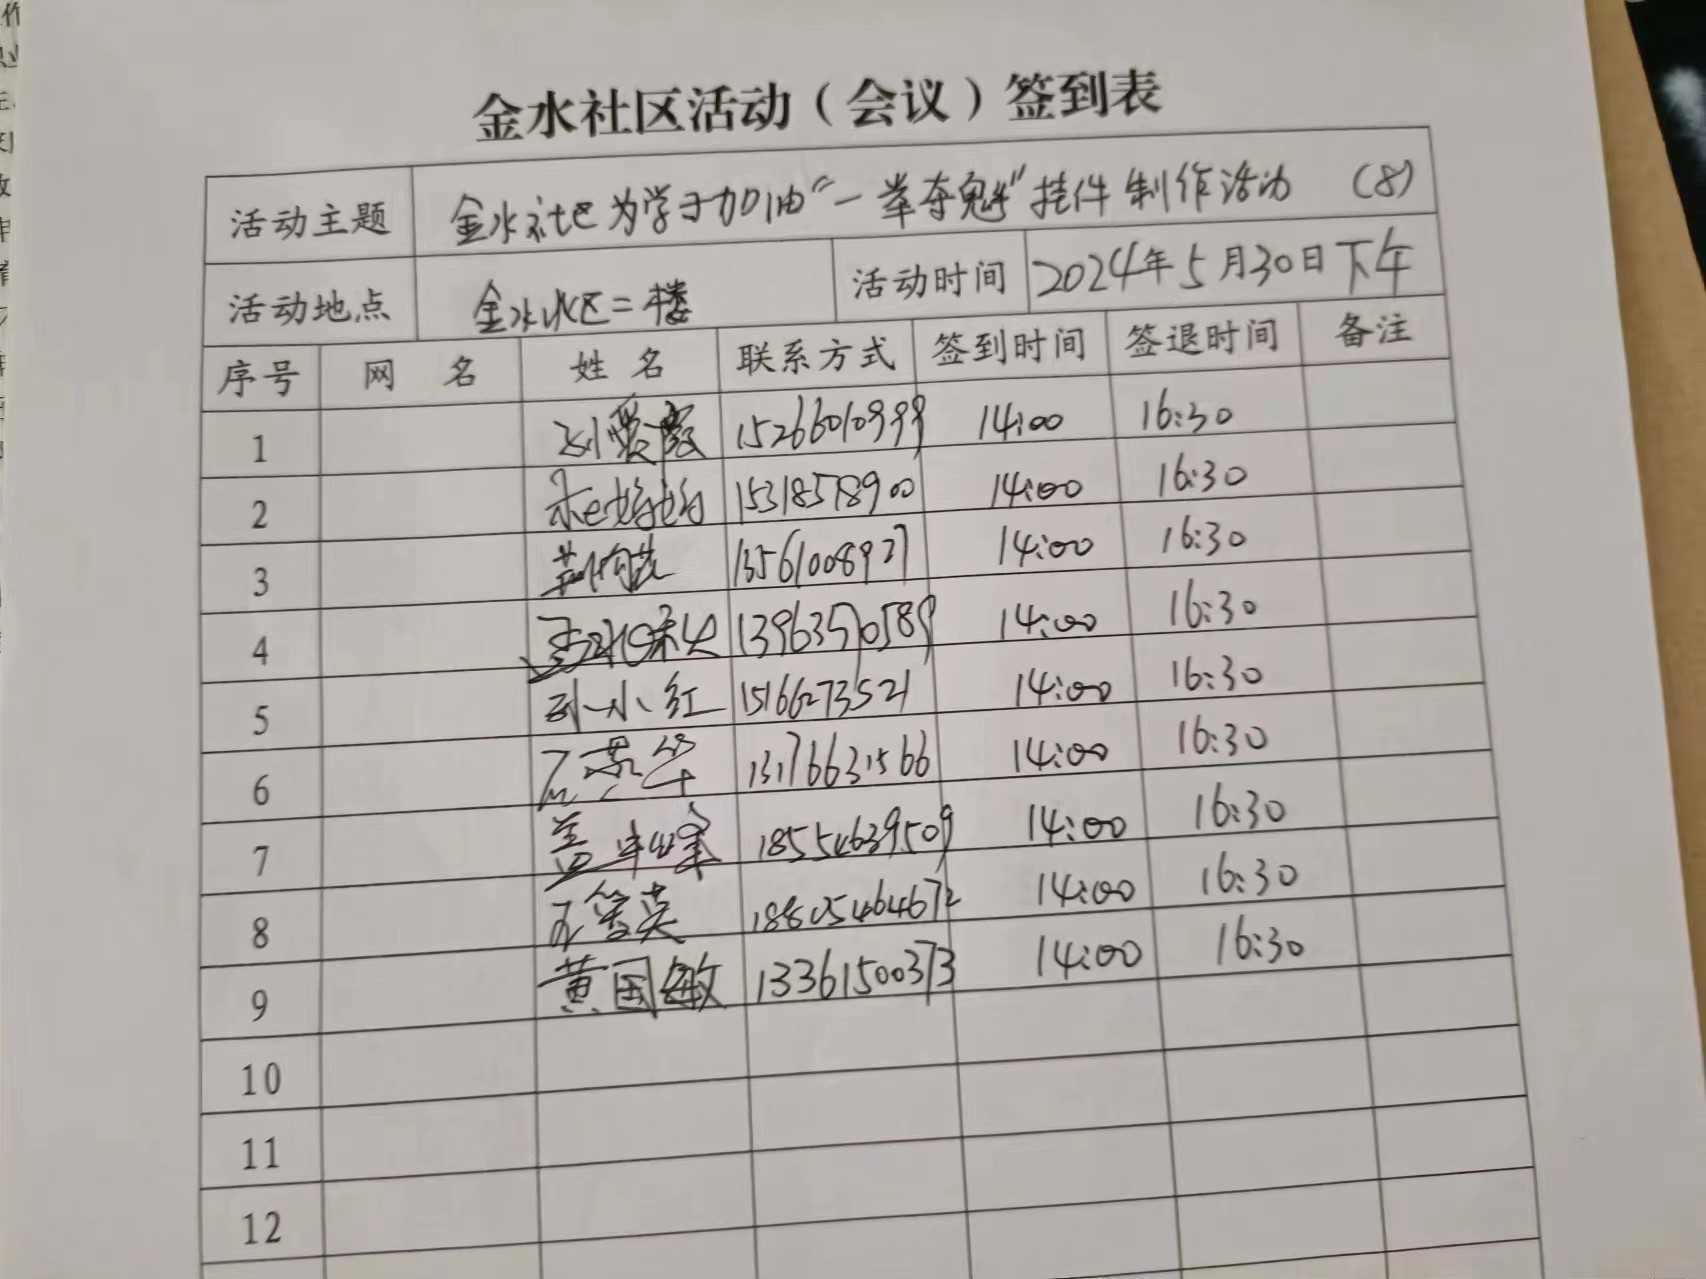 金水社区活动（会议）签到表
活动主题 金水社区为学子加油"一举夺魁"挂件制作活动 (8)
活动地点 金水社区二楼 活动时间 2024年5月30日下午
序号 网 名 姓 名 联系方式 签到时间 签退时间 备注
1 15266010999 14:00 16:30
2 15318578900 14:00 16:30
3 13561008927 14:00 16:30
4 13963570589 14:00 16:30
5 孙小红 15166273521 14:00 16:30
6 13176631566 14:00 16:30
7 18554639509 14:00 16:30
8 18805464672 14:00 16:30
9 黄国敏 13361500373 14:00 16:30
10
11
12